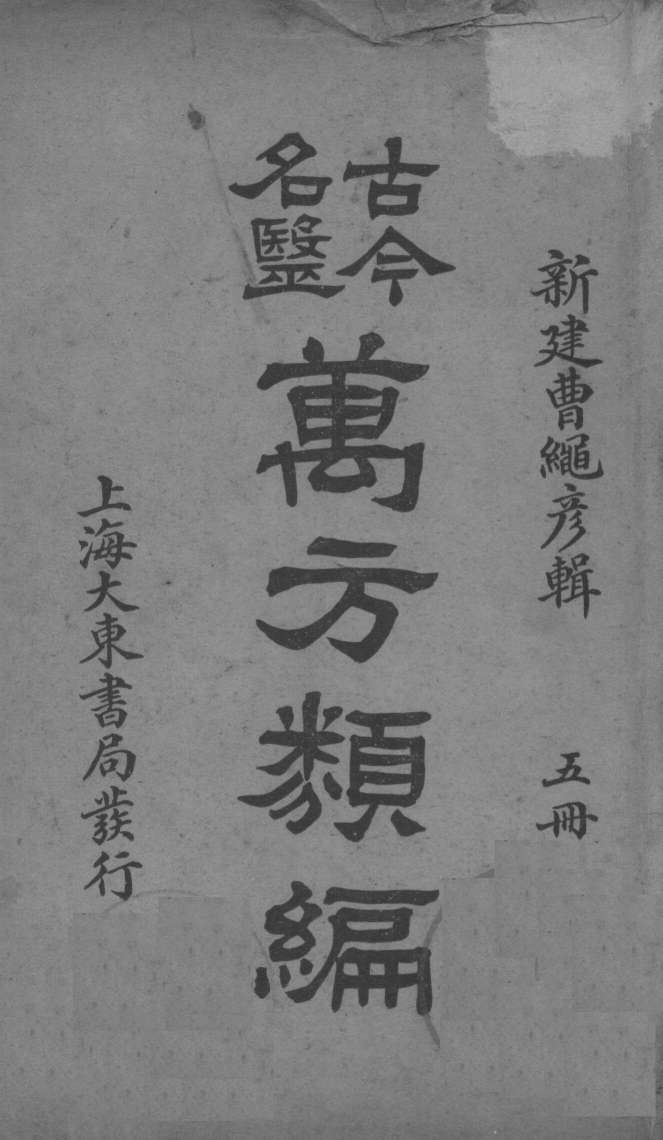 新建曹繩彦輯
五冊
古今
名醫
萬方類編
上海大東書局發行